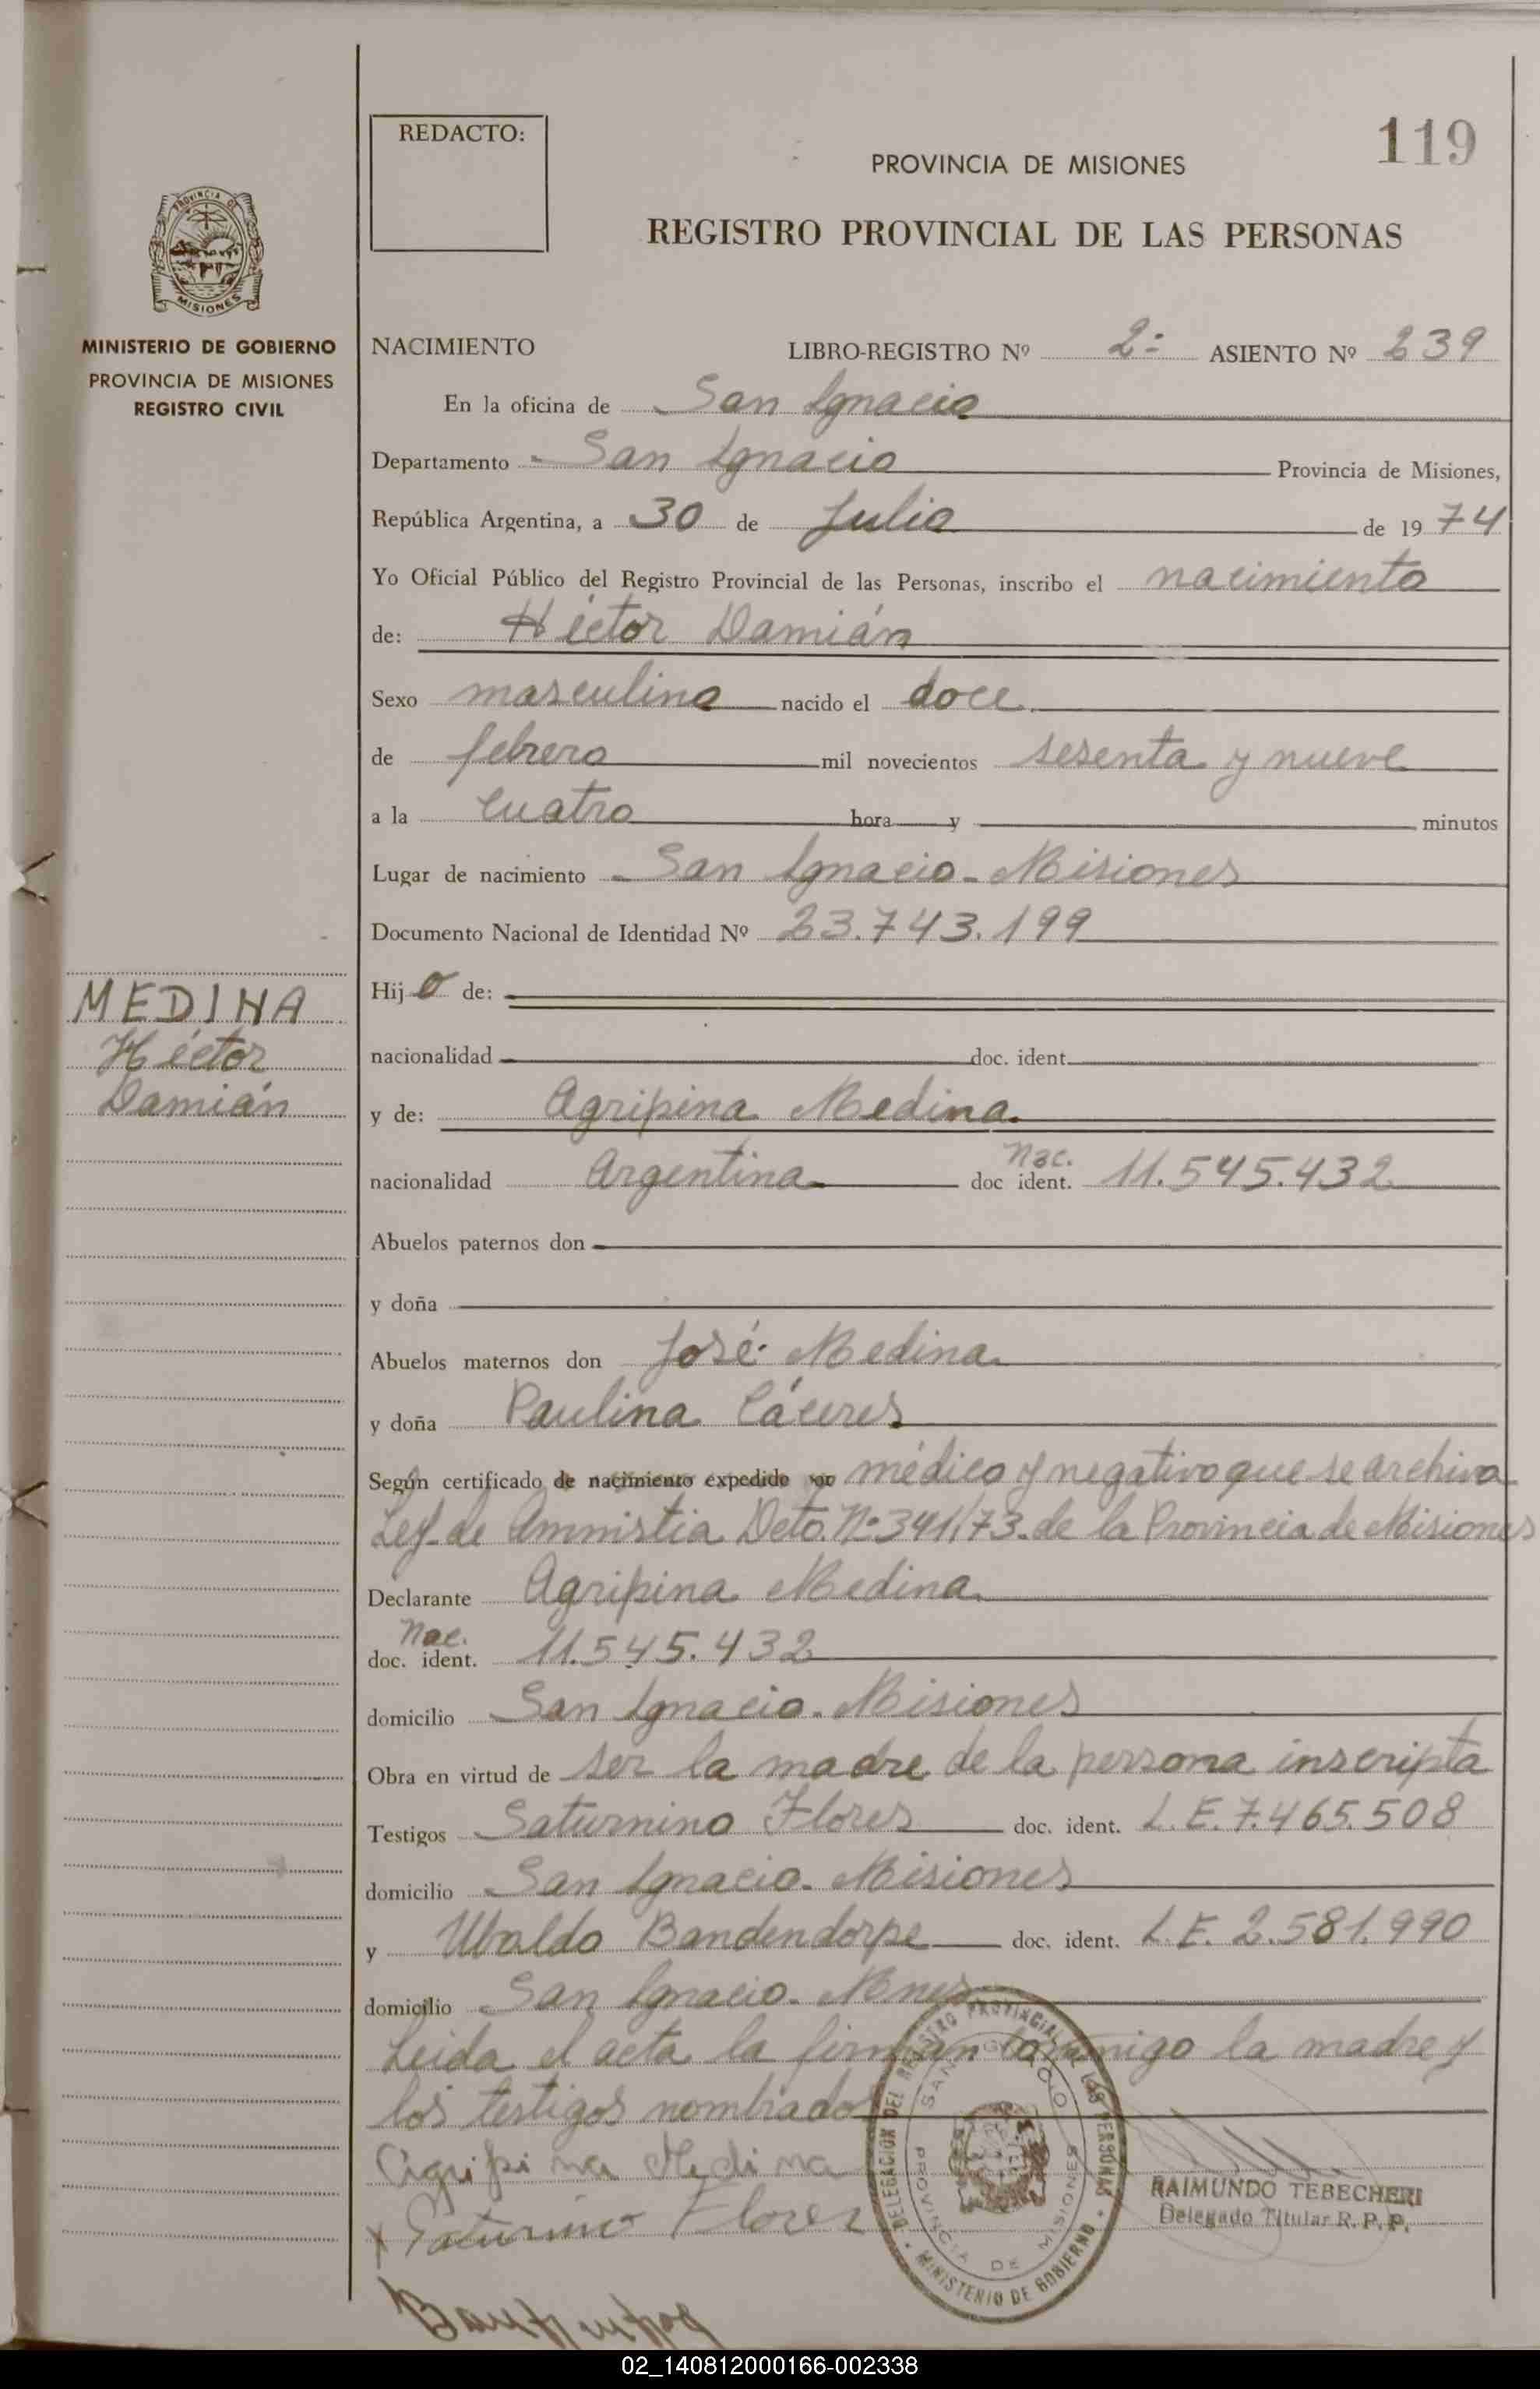 REDACTO:
119
PROVINCIA DE MISIONES
REGISTRO PROVINCIAL DE LAS PERSONAS
PROVINCIA DE
MISIONES
MINISTERIO DE GOBIERNO
PROVINCIA DE MISIONES
REGISTRO CIVIL
NACIMIENTO LIBRO-REGISTRO Nº 2º ASIENTO Nº 239
En la oficina de San Ignacio
Departamento San Ignacio Provincia de Misiones,
República Argentina, a 30 de Julio de 1974
Yo Oficial Público del Registro Provincial de las Personas, inscribo el nacimiento
de: Héctor Damián
Sexo masculino nacido el doce
de febrero mil novecientos sesenta y nueve
a la cuatro hora y minutos
Lugar de nacimiento San Ignacio - Misiones
Documento Nacional de Identidad Nº 23.743.199
Hijo de:
MEDINA
Héctor
Damián
nacionalidad doc. ident.
y de: Agripina Medina
nacionalidad Argentina doc ident. Nac. 11.545.432
Abuelos paternos don
y doña
Abuelos maternos don José Medina
y doña Paulina Cáceres
Según certificado de nacimiento expedido por médico y negativo que se archiva
Ley de Amnistia Deto. Nº 341/73. de la Provincia de Misiones
Declarante Agripina Medina
Nac.
doc. ident. 11.545.432
domicilio San Ignacio. Misiones
Obra en virtud de ser la madre de la persona inscripta
Testigos Saturnino Flores doc. ident. L.E. 7.465.508
domicilio San Ignacio. Misiones
y Ubaldo Bandendorpe doc. ident. L.E. 2.581.990
domicilio San Ignacio. Mnes
Leida el acta la firman conmigo la madre y
los testigos nombrados
Agripina Medina
x Saturnino Flores
DELEGACION DEL REGISTRO PROVINCIAL DE LAS PERSONAS
MINISTERIO DE GOBIERNO
SAN IGNACIO
PROVINCIA DE MISIONES
RAIMUNDO TEBECHERI
Delegado Titular R. P. P.
02_140812000166-002338